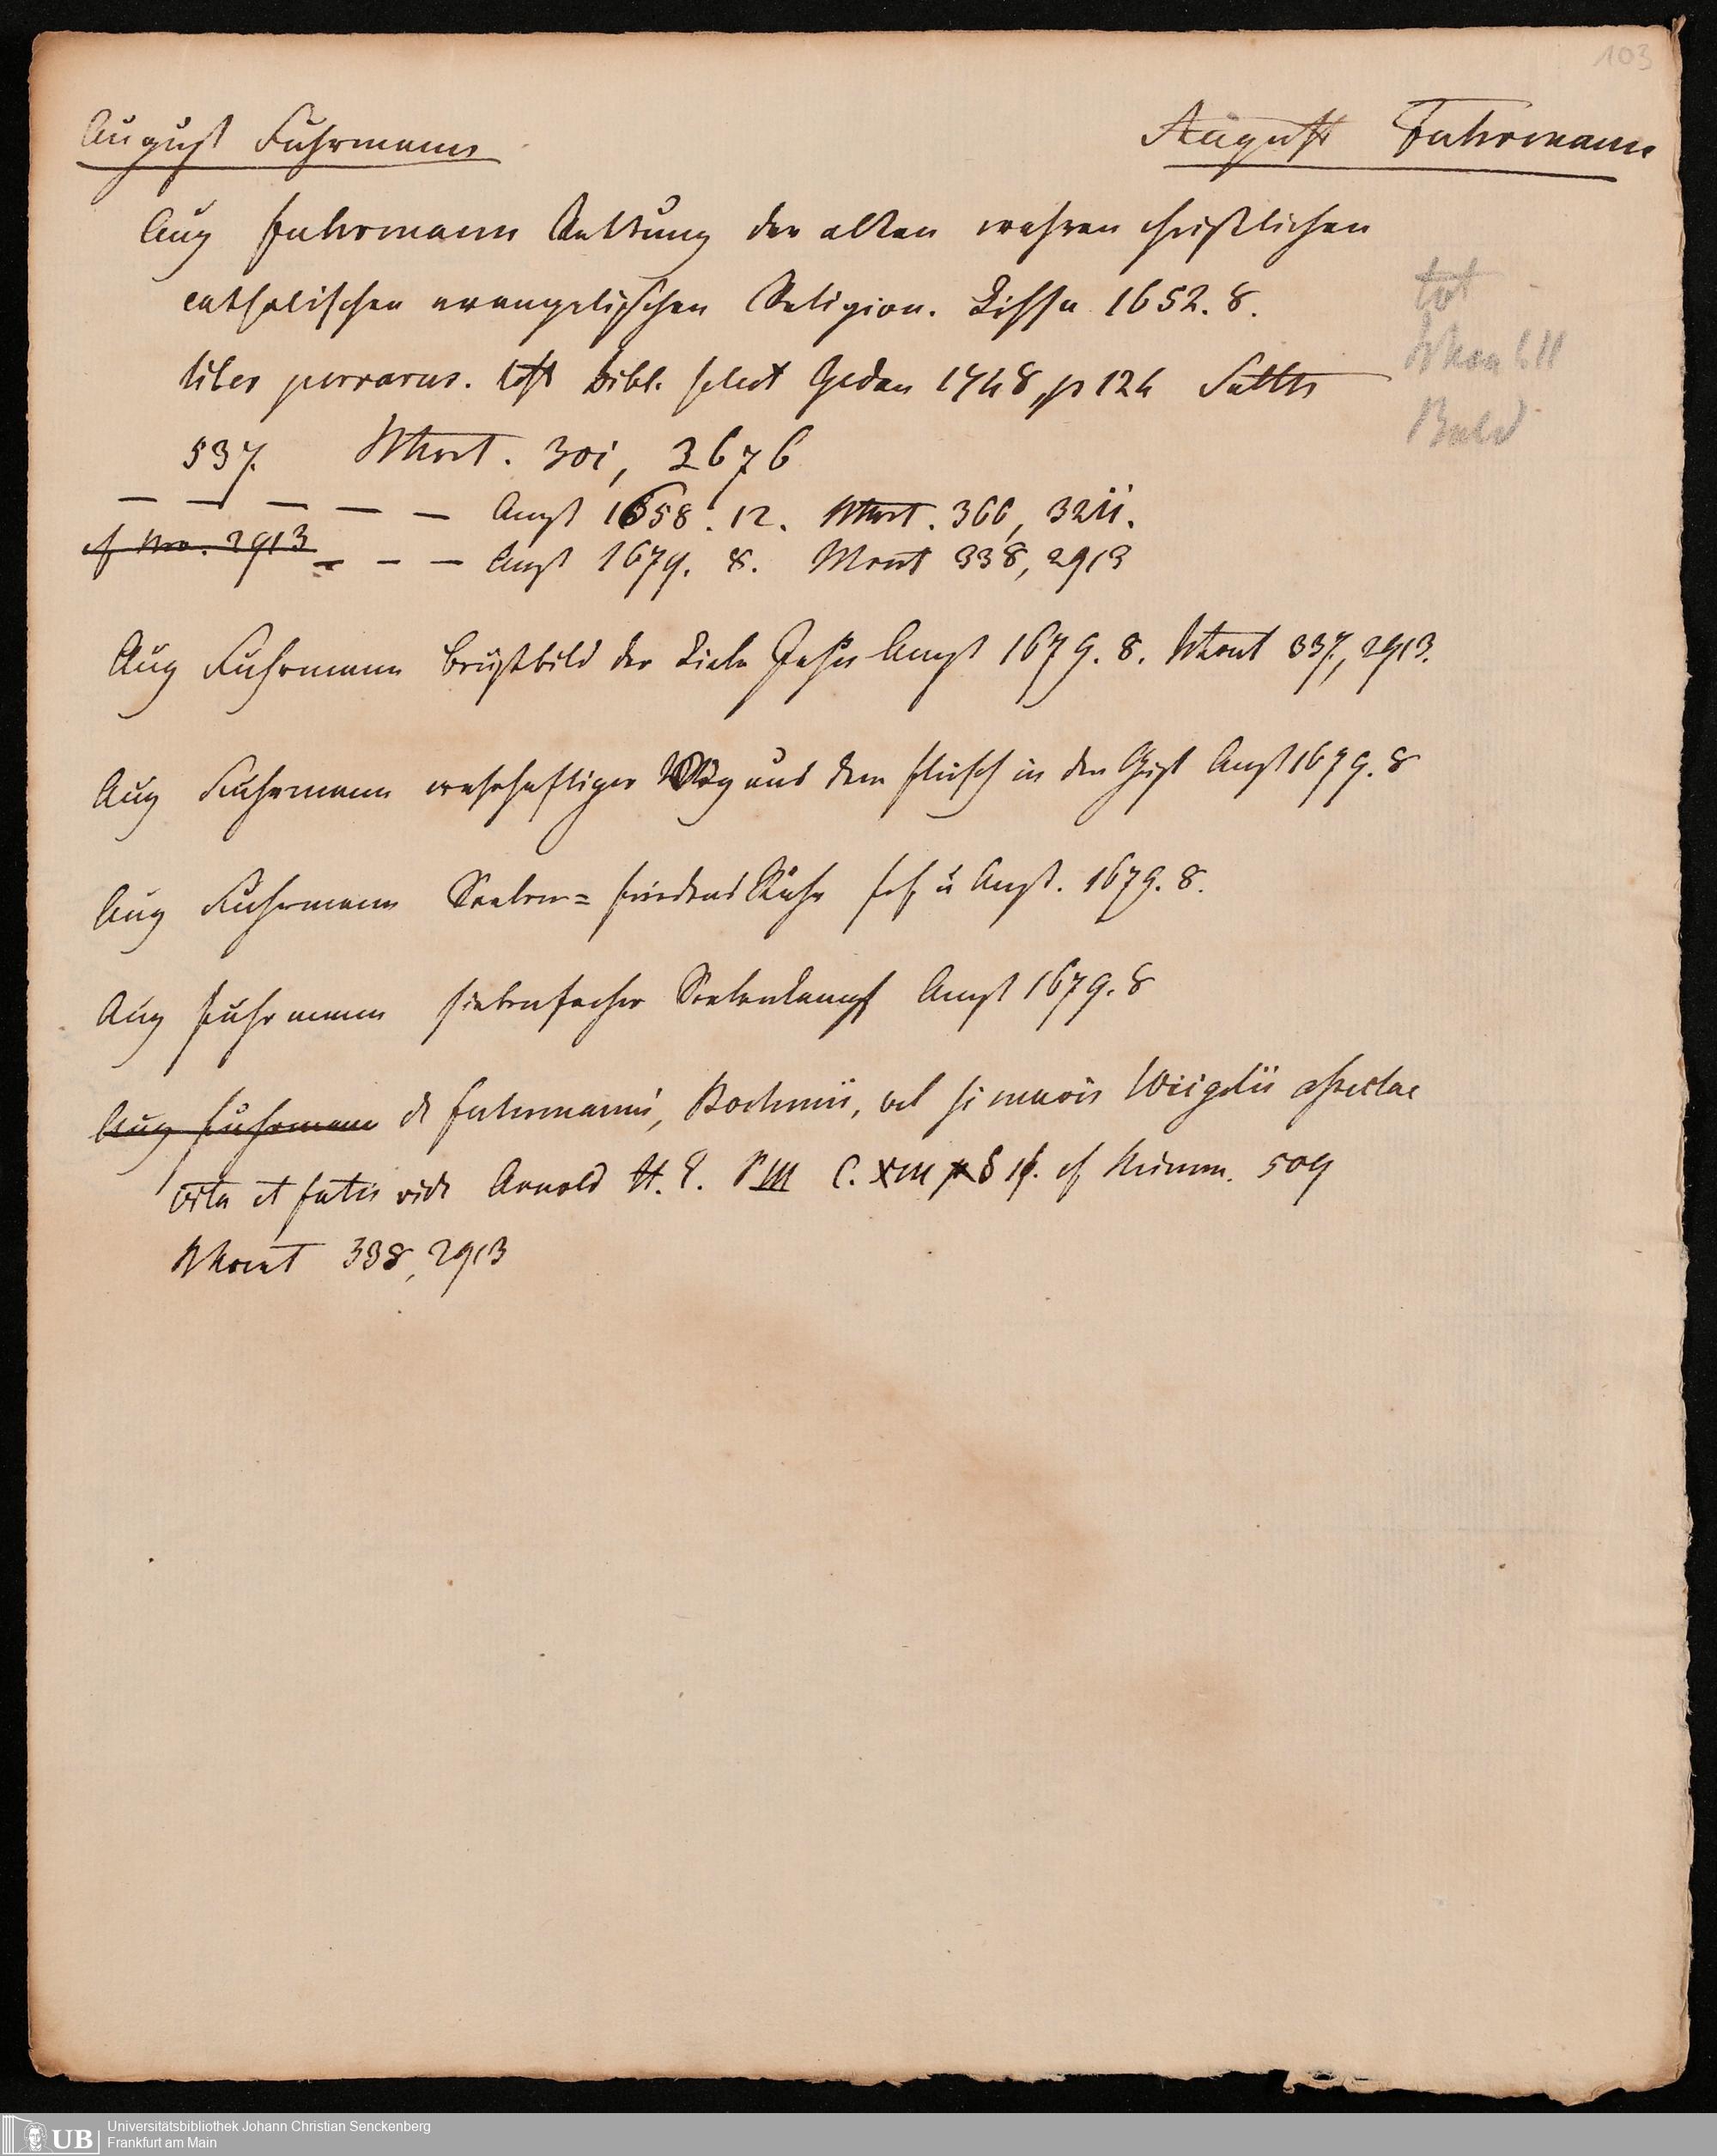 103
August Fuhrmann
August Fuhrmann
Aug Fuhrmann Rettung der alten wahren christlichen
catholischen evangelischen Religion. Lissa 1652. 8.
liber perrarus. Bibl. select Gedan 1748, p 124
537. Mwst. 301, 2676
— — — — — Amst 1658. 12. 366, 3211.
cf Nro. 2913 - - — Amst 1679. 8. 338, 2913
Aug Fuhrmann Brustbild der Liebe Jesu Amst 1679. 8. 337, 2913.
Aug Fuhrmann wahrhaftiger Weg aus dem fleisch in den Geist Amst 1679. 8
Aug Fuhrmann Seelen= friedens Ruhe Amst. 1679. 8.
Aug fuhrmann siebenfacher Seelenkampf Amst 1679. 8
Aug fuhrmann de fuhrmanni, Boehmii, vel si mavis Weigelii asseclae
vita et fatis vide Arnold H. E. P III C. XIII § cf Numm. 509
338, 2913
tot
Bald
UB Universitätsbibliothek Johann Christian Senckenberg
Frankfurt am Main